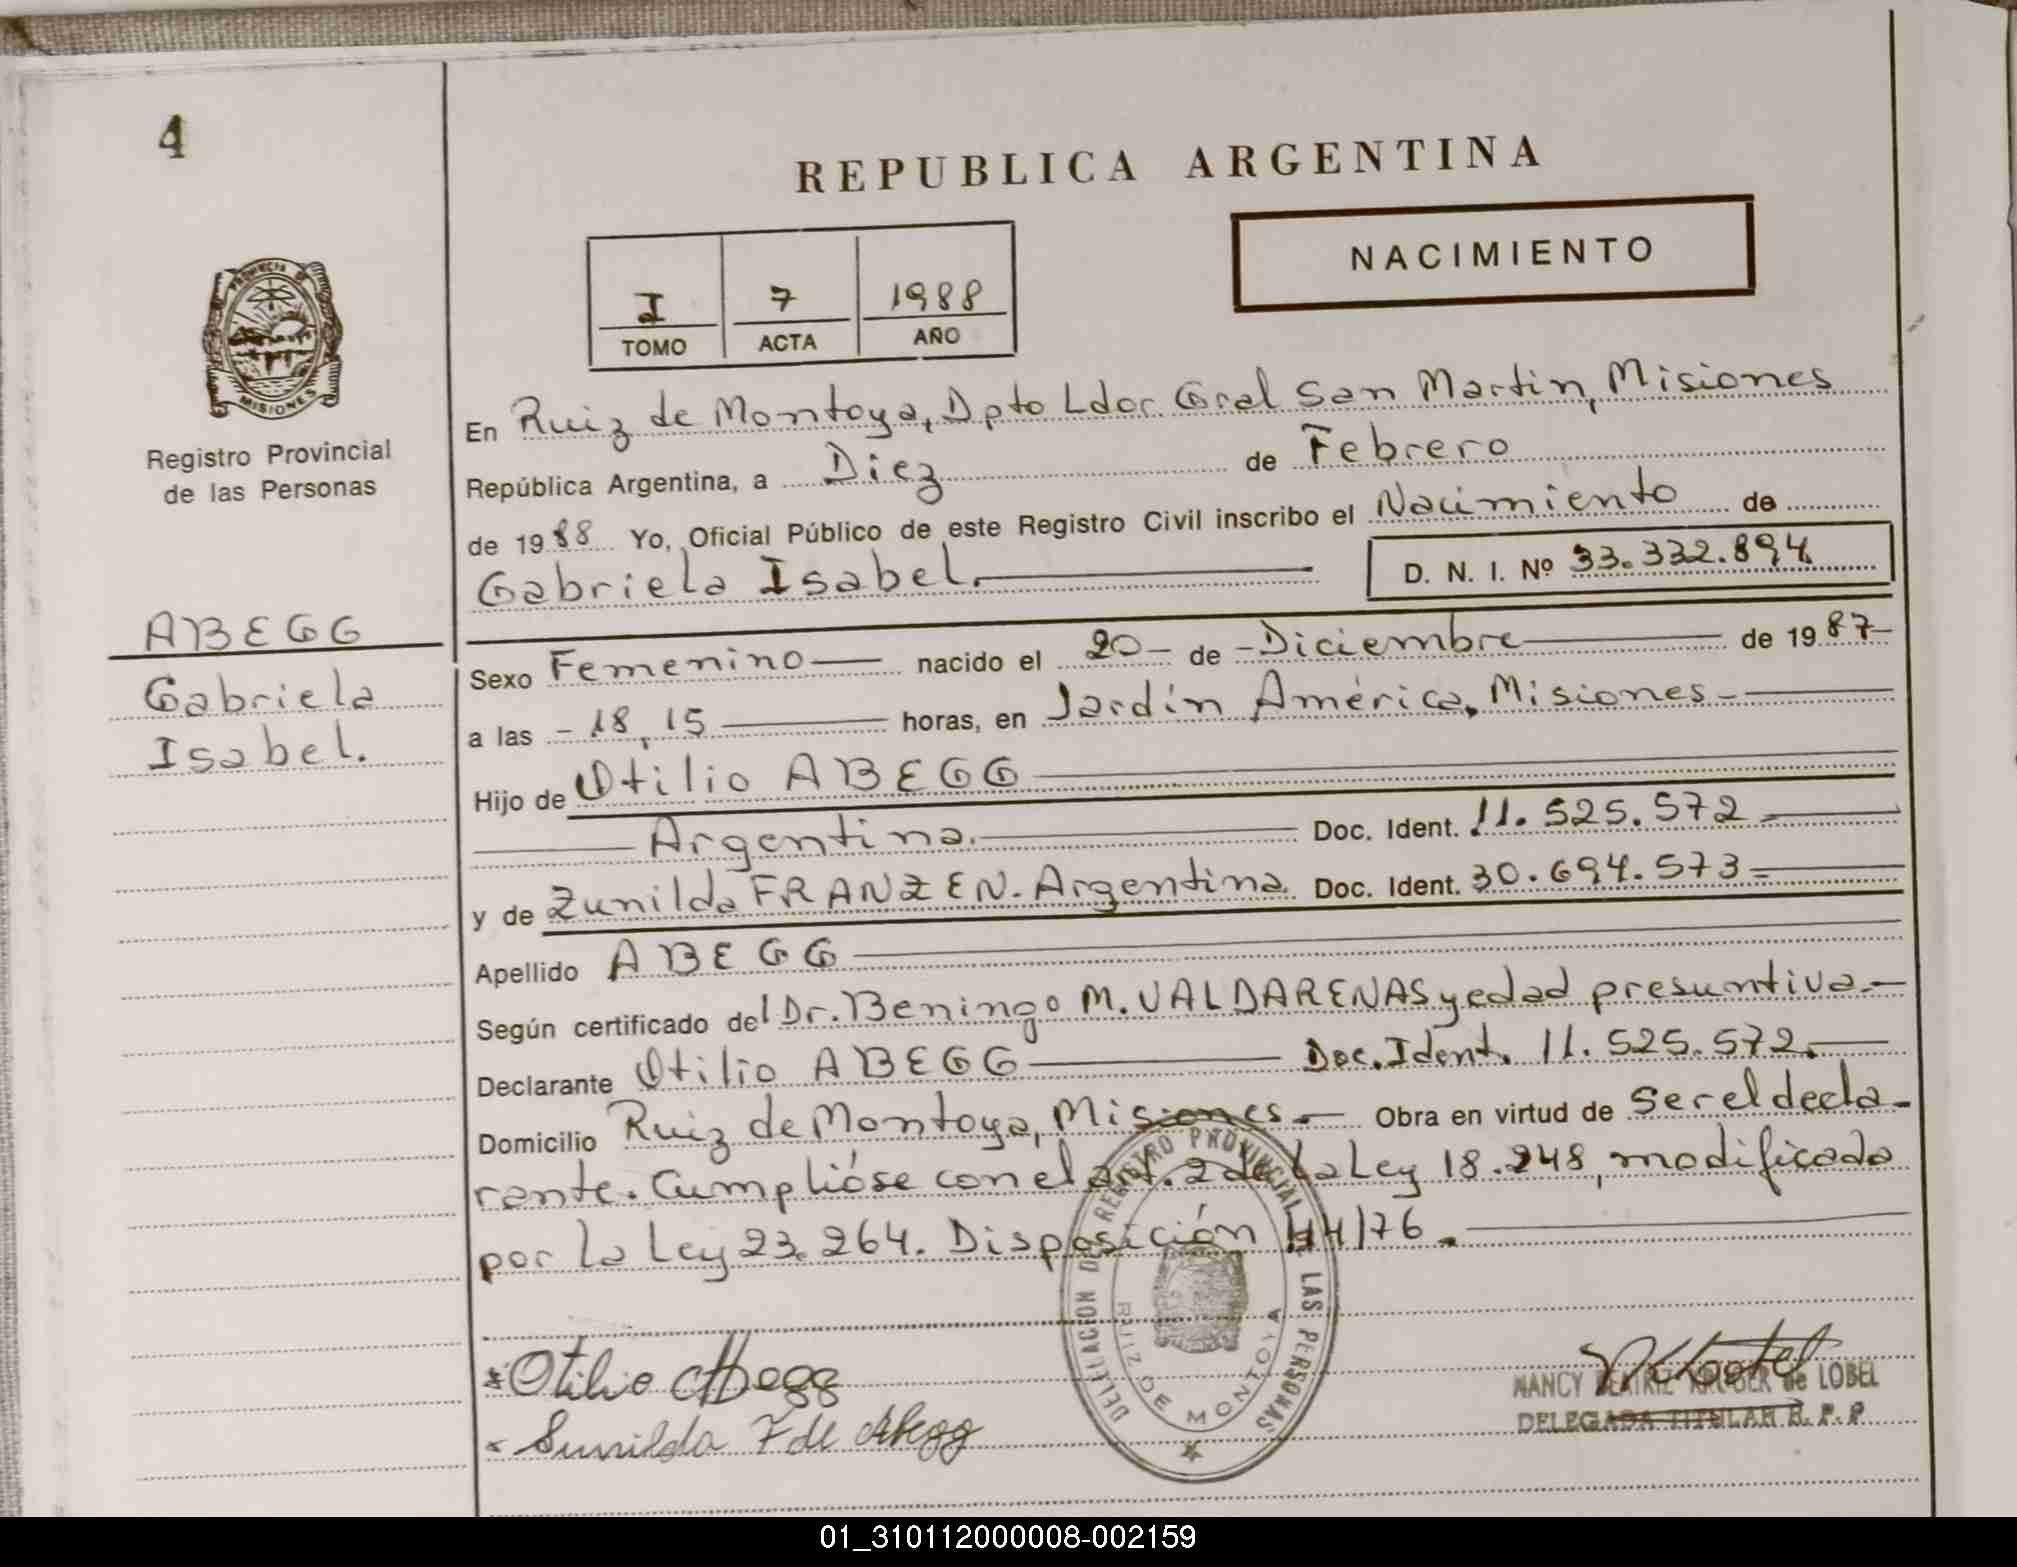 4
REPUBLICA ARGENTINA
NACIMIENTO
I 7 1988
TOMO ACTA AÑO
PROVINCIA DE MISIONES
Registro Provincial
de las Personas
ABEGG
Gabriela
Isabel.
En Ruiz de Montoya, Dpto Ldor. Gral San Martin, Misiones
República Argentina, a Diez de Febrero
de 1988 Yo, Oficial Público de este Registro Civil inscribo el Nacimiento de
Gabriela Isabel. D. N. I. Nº 33.332.894
Sexo Femenino nacido el 20 de Diciembre de 1987
a las 18,15 horas, en Jardín América, Misiones
Hijo de Otilio ABEGG
Argentina. Doc. Ident. 11.525.572
y de Zunilda FRANZEN. Argentina. Doc. Ident. 30.694.573
Apellido ABEGG
Según certificado del Dr. Beningo M. VALDARENAS y edad presuntiva.
Declarante Otilio ABEGG Doc. Ident. 11.525.572.
Domicilio Ruiz de Montoya, Misiones. Obra en virtud de ser el decla-
rante. Cumplióse con el art. 2 de la Ley 18.248, modificada
por la Ley 23.264. Disposición 44/76.
DELEGACION DE REGISTRO PROVINCIAL DE LAS PERSONAS
RUIZ DE MONTOYA
* Otilio Abegg
x Sunilda F de Abegg
NANCY BEATRIZ KRUGER de LOBEL
DELEGADA TITULAR R. P. P.
01_310112000008-002159